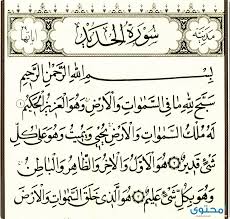 مدنية سورة الحديد آياتها
بِسْمِ اللَّهِ الرَّحْمَٰنِ الرَّحِيمِ
سَبَّحَ لِلَّهِ مَا فِي السَّمَٰوَٰتِ وَالْأَرْضِ وَهُوَ الْعَزِيزُ الْحَكِيمُ ١
لَهُ مُلْكُ السَّمَٰوَٰتِ وَالْأَرْضِ يُحْيِ وَيُمِيتُ وَهُوَ عَلَىٰ كُلِّ
شَيْءٍ قَدِيرٌ ٢ هُوَ الْأَوَّلُ وَالْآخِرُ وَالظَّاهِرُ وَالْبَاطِنُ
وَهُوَ بِكُلِّ شَيْءٍ عَلِيمٌ ٣ هُوَ الَّذِي خَلَقَ السَّمَٰوَٰتِ وَالْأَرْضَ
محتوى